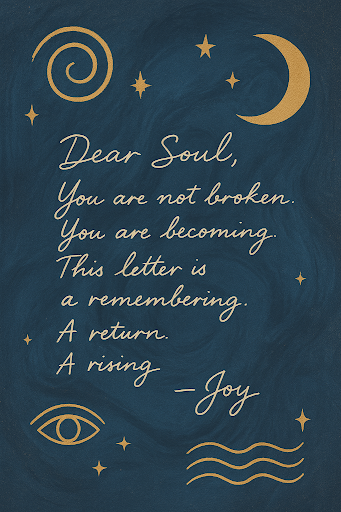 Dear Soul,
You are not broken.
You are becoming.
This letter is
a remembering.
A return.
A rising
—Joy